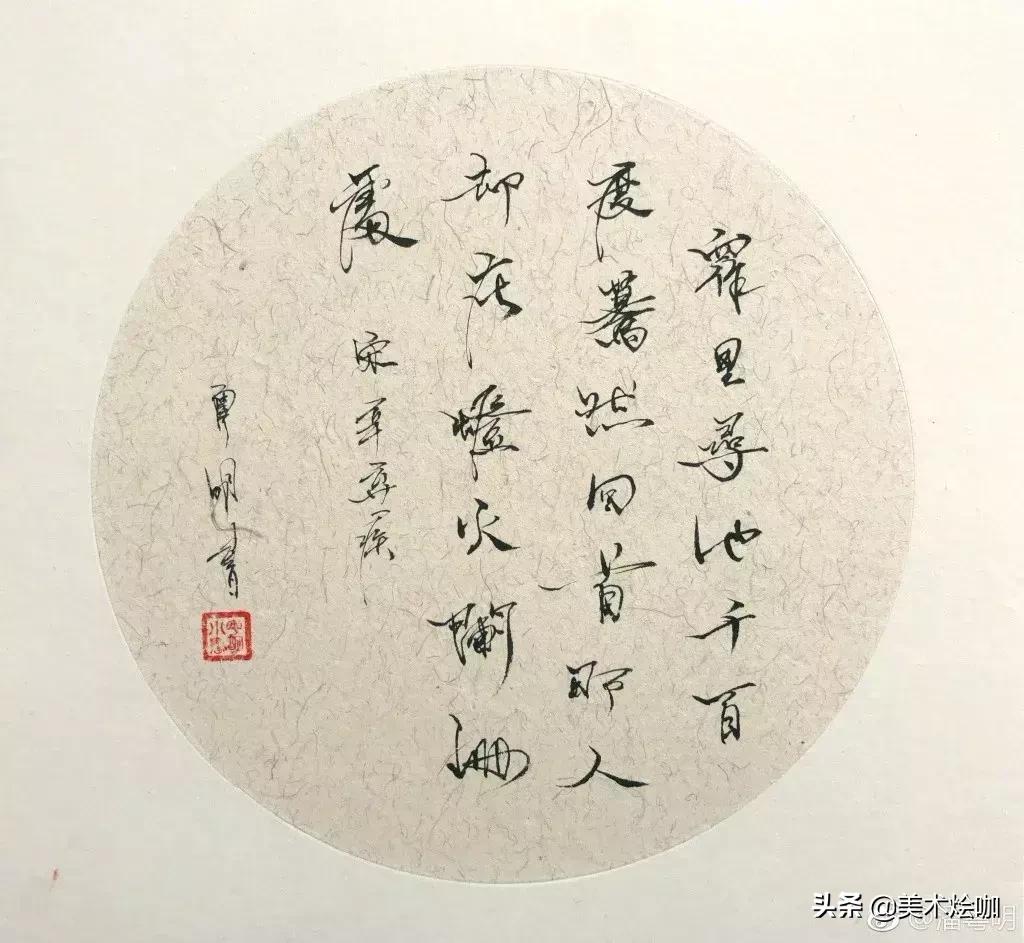 眾里尋他千百
度驀然回首那人
却在燈火闌珊
處 宋辛棄疾
粤明書
头条 @美术烩咖
@潘粤明